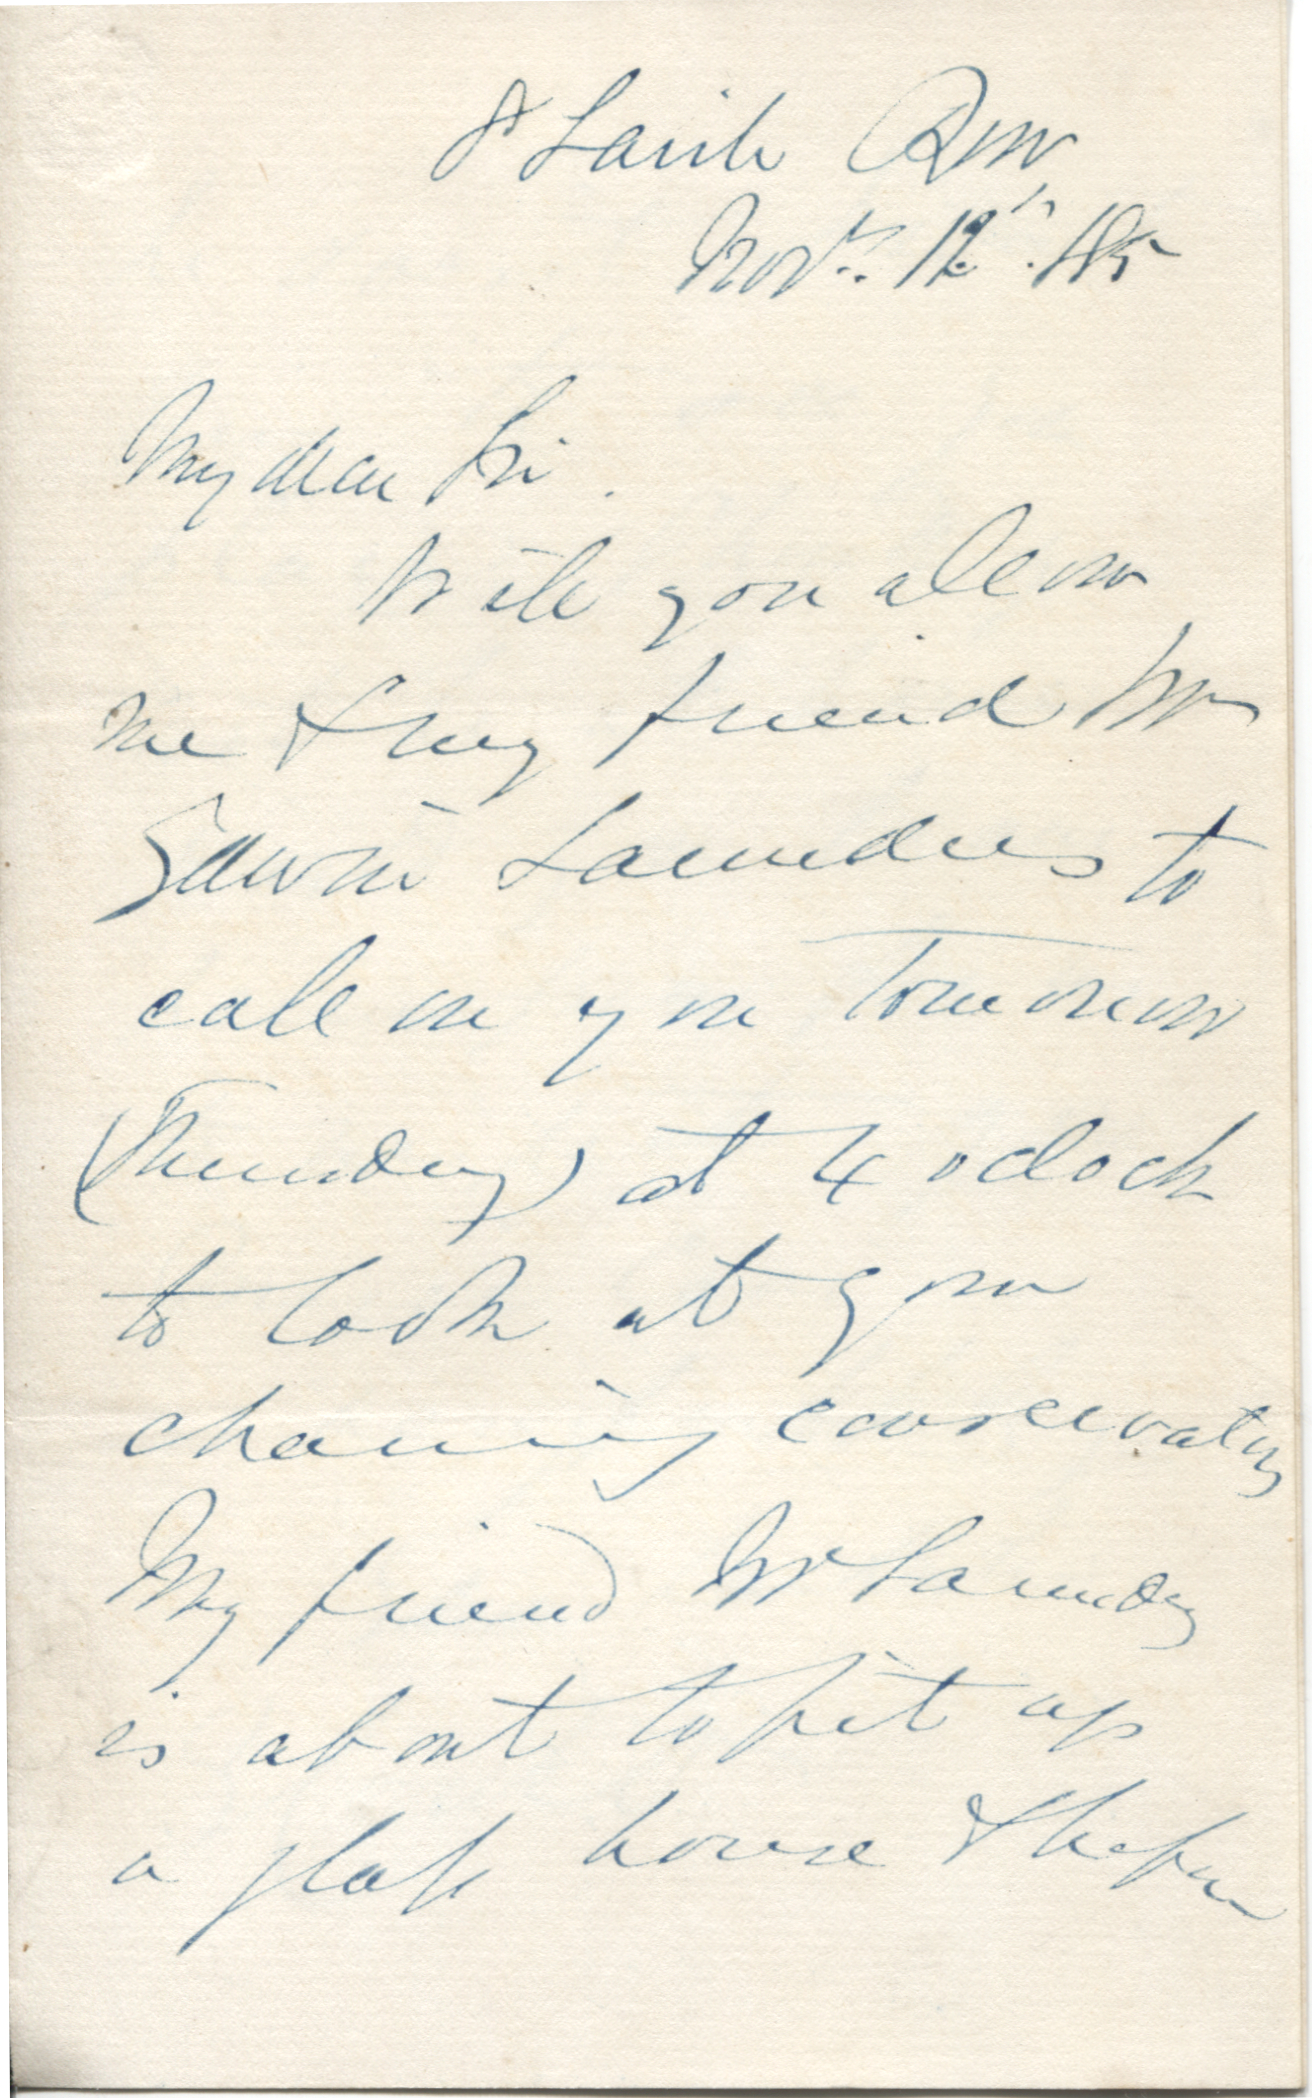 8 Savile Row
Novr. 12th. /85
My dear Sir.
Will you allow
me & my friend Mr
Edwin Saunders to
call on you tomorrow
(Thursday) at 4 oclock
to look at your
charming conservatory
My friend Mr Saunders
is about to fit up
a glass house & before